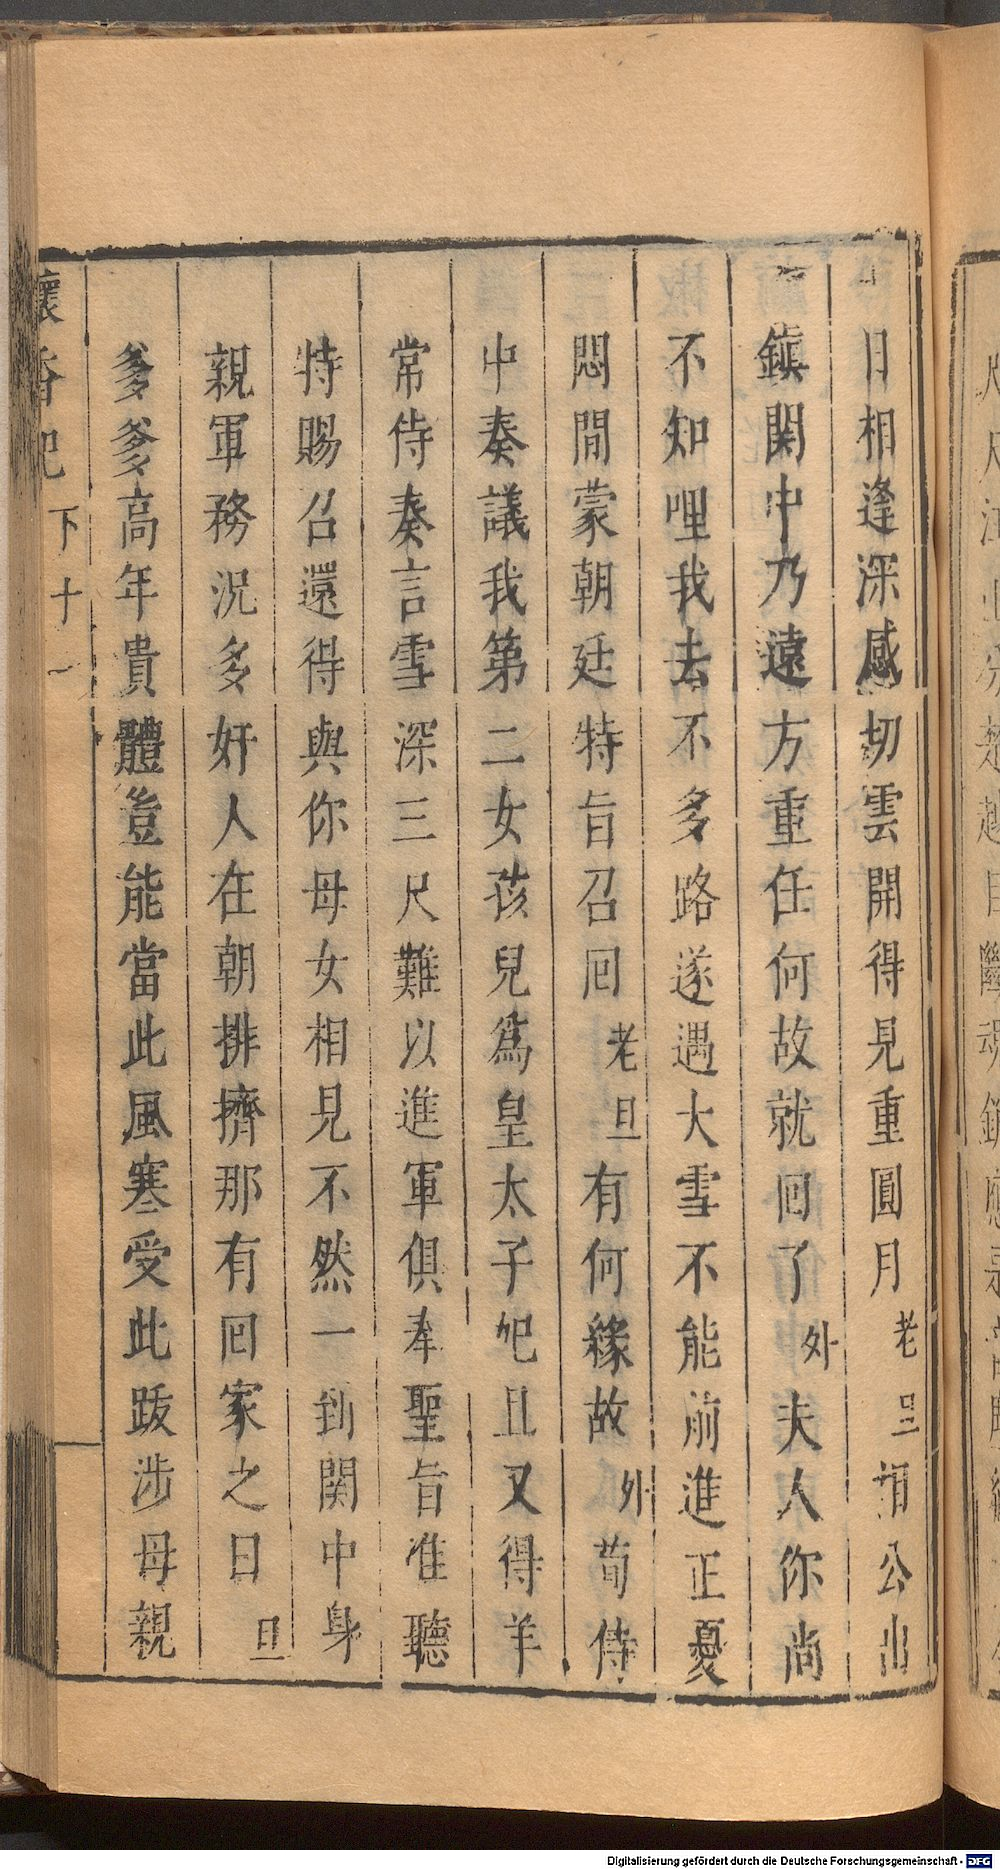 日相逢深感切雲開得見重圓月老旦相公出
鎮関中乃遠方重任何故就回了外夫人你尚
不知哩我去不多路遂遇大雪不能前進正憂
悶間蒙朝廷特旨召回老旦有何緣故外荀侍
中奏議我第二女孩兒爲皇太子妃且又得羊
常侍奏言雪深三尺難以進軍俱奉聖旨准聽
特賜召還得與你母女相見不然一到関中身
親軍務況多奸人在朝排擠那有回家之日旦
爹爹高年貴體豈能當此風寒受此跋涉母親
懷香記 下 十一
Digitalisierung gefördert durch die Deutsche Forschungsgemeinschaft - DFG